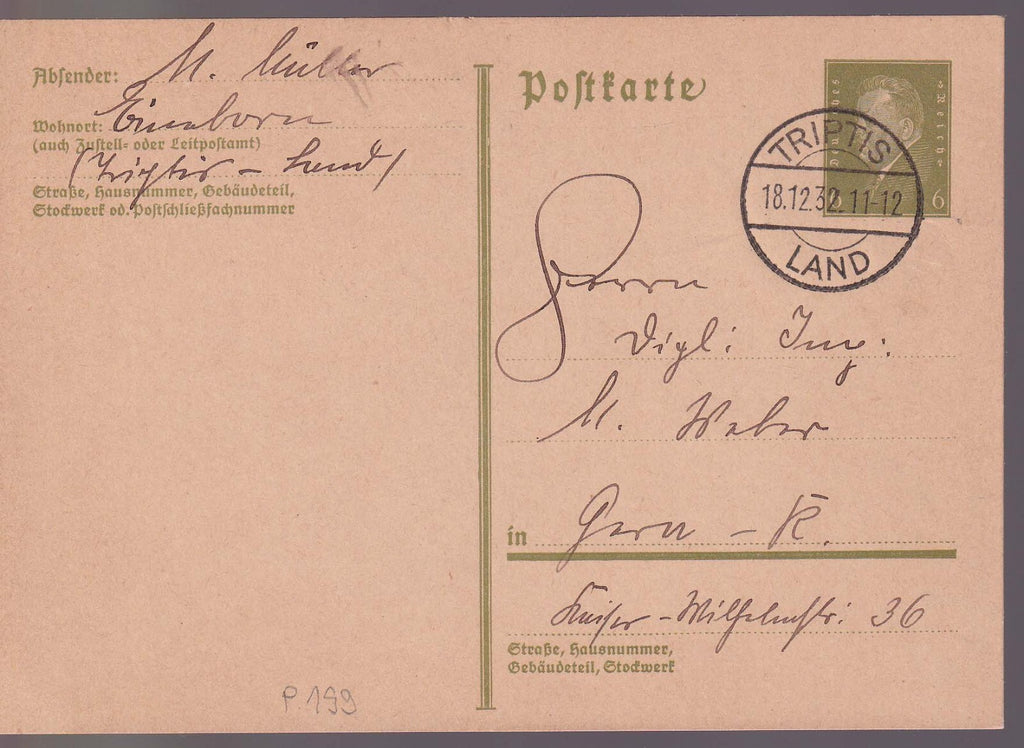 Absender: M. Müller
Wohnort:
(auch Zustell- oder Leitpostamt)
(Triptis – Land)
Straße, Hausnummer, Gebäudeteil,
Stockwerk od. Postschließfachnummer
Postkarte
Deutsches Reich
6
TRIPTIS
18.12.32. 11-12
LAND
Herrn
Dipl: Ing:
M. Weber
in Gera – R.
Kaiser-Wilhelmstr: 36
Straße, Hausnummer,
Gebäudeteil, Stockwerk
P. 199